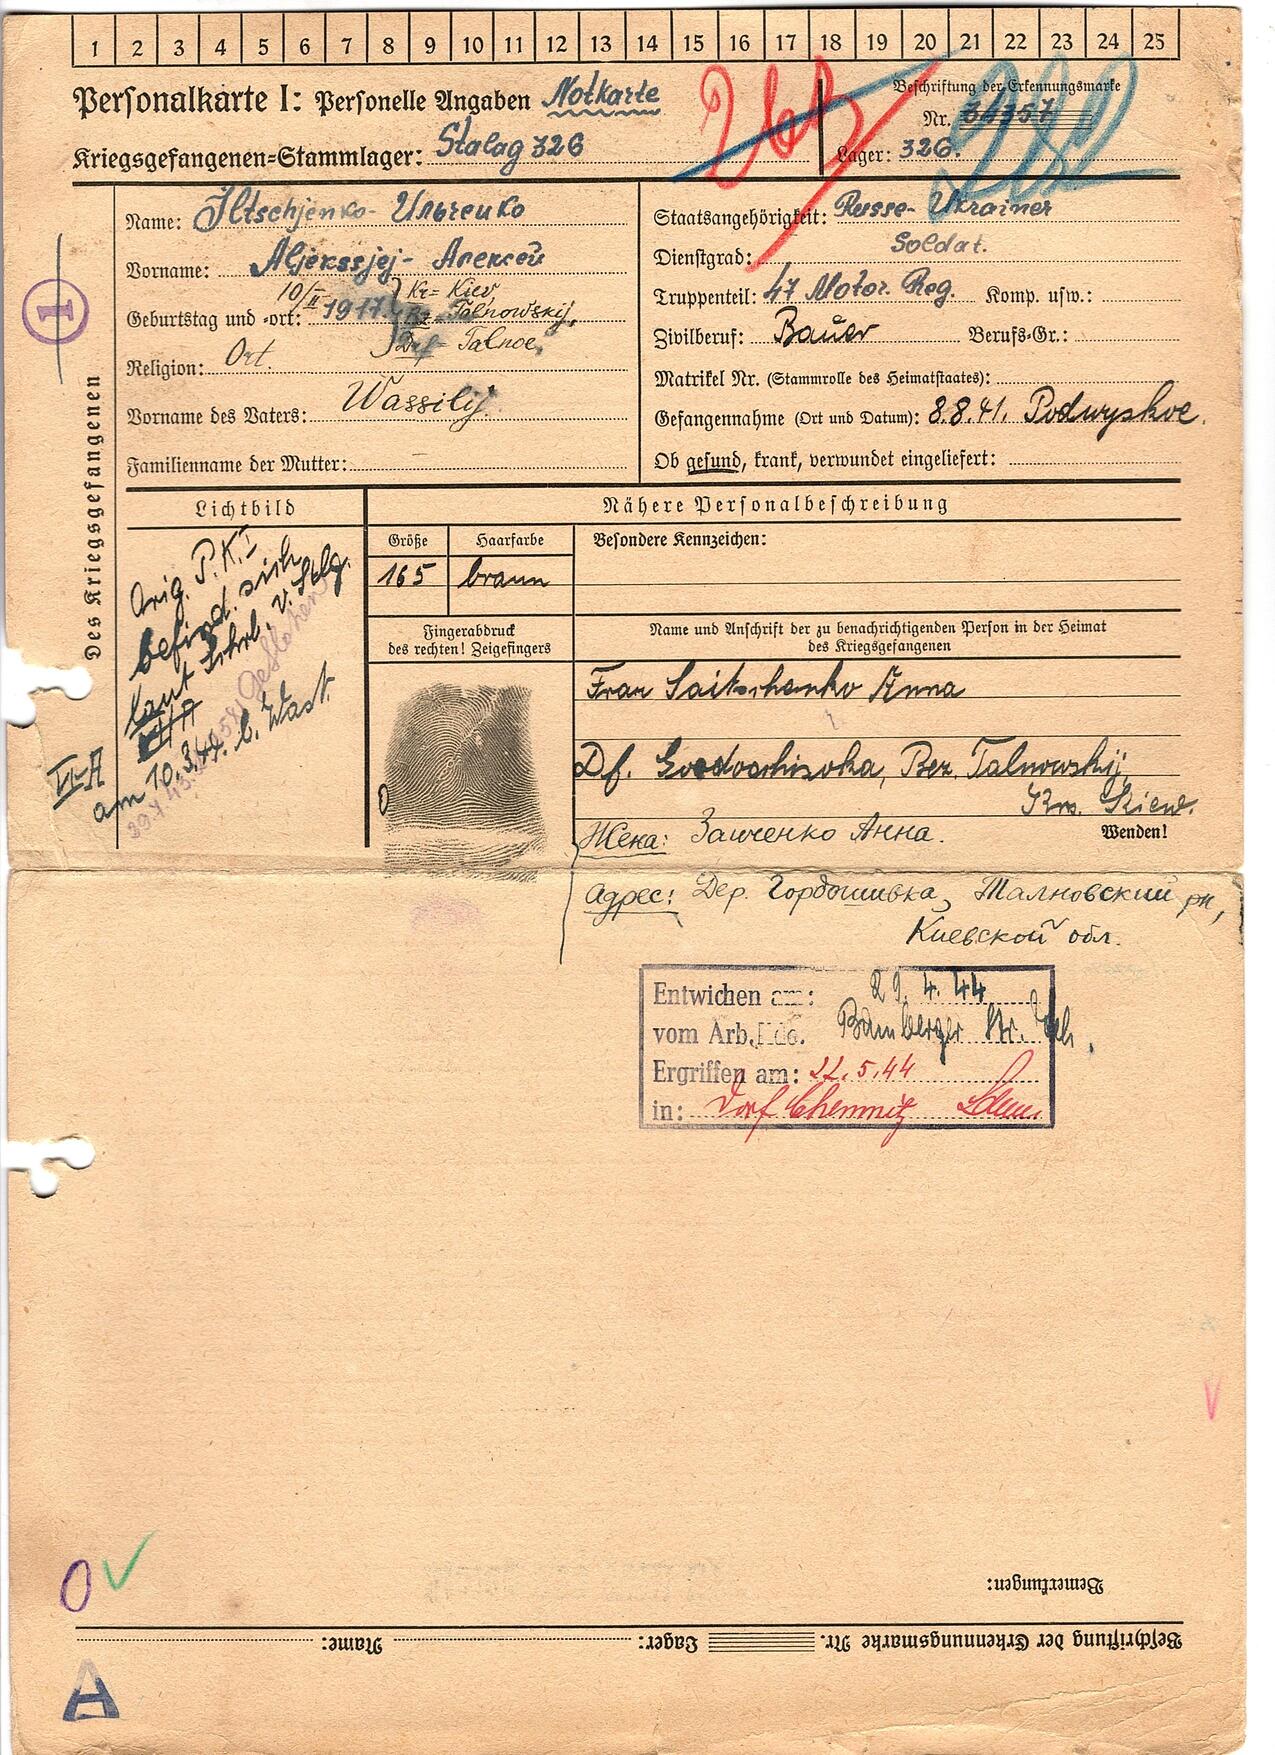 1 2 3 4 5 6 7 8 9 10 11 12 13 14 15 16 17 18 19 20 21 22 23 24 25
Personalkarte I: Personelle Angaben Notkarte
Beschriftung der Erkennungsmarke
Nr. 34357
Kriegsgefangenen-Stammlager: Stalag 326
Lager: 326.
263
282
Des Kriegsgefangenen
I
Name: Iltschjenko- Ильченко
Vorname: Aljekssjej- Алексей
Geburtstag und -ort: 10/II 1917. Kr= Kiev
Bz= Talnowskij,
Df= Talnoe,
Religion: Ort.
Vorname des Vaters: Wassilij
Familienname der Mutter: –
Staatsangehörigkeit: Russe- Ukrainer
Dienstgrad: Soldat.
Truppenteil: 47 Motor. Reg. Komp. usw.:
Zivilberuf: Bauer Berufs-Gr.:
Matrikel Nr. (Stammrolle des Heimatstaates):
Gefangennahme (Ort und Datum): 8.8.41. Podwyskoe.
Ob gesund, krank, verwundet eingeliefert:
Lichtbild
Orig. P.K.I
befind. sich
laut Schrb. v. Stlg.
VI A
am 10.3.44. b. Wast
Nähere Personalbeschreibung
Größe Haarfarbe
165 braun
Besondere Kennzeichen:
Fingerabdruck
des rechten! Zeigefingers
Name und Anschrift der zu benachrichtigenden Person in der Heimat
des Kriegsgefangenen
Frau Saitschenko Anna
Df. Gordoschiwka, Bez. Talnowskij,
Krs. Kiew.
Wenden!
Жена: Заиченко Анна.
Адрес: Дер. Гордошивка, Талновский рн,
Киевской обл.
Entwichen am: 29.4.44
vom Arb.Kdo. Bamberger Str.
Ergriffen am: 22.5.44
in: Dorf Chemnitz
Bemerkungen:
Beschriftung der Erkennungsmarke Nr. Lager: Name:
A